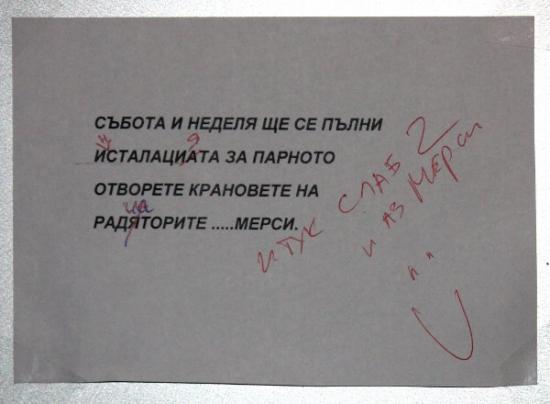 СЪБОТА И НЕДЕЛЯ ЩЕ СЕ ПЪЛНИ
ИСТАЛАЦИАТА ЗА ПАРНОТО
ОТВОРЕТЕ КРАНОВЕТЕ НА
РАДЯТОРИТЕ .....МЕРСИ.
Н
Я
иа
И ТУК СЛАБ 2
И АЗ МЕРСИ